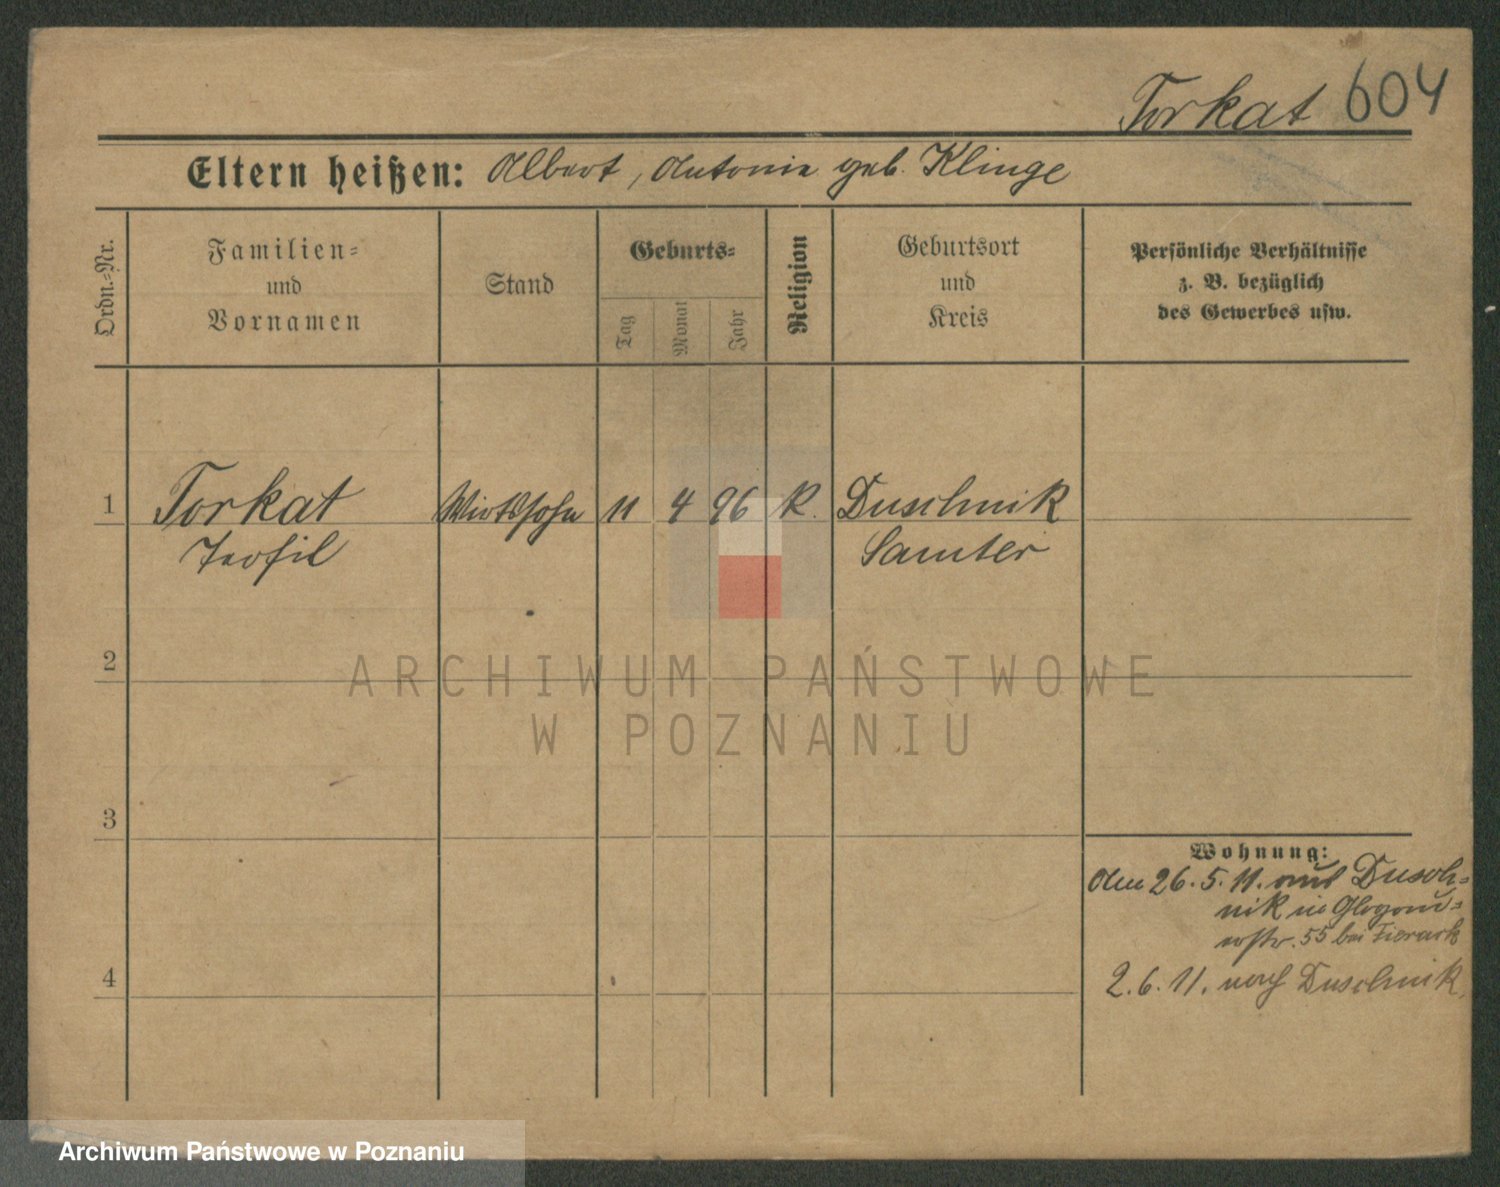 Torkat 604
Eltern heißen: Albert, Antonie geb. Klinge
Ordn.-Nr.
Familien-
und
Vornamen
Stand
Geburts-
Tag
Monat
Jahr
Religion
Geburtsort
und
Kreis
Persönliche Verhältnisse
z. B. bezüglich
des Gewerbes usw.
1 Torkat Wirtssohn 11 4 96 K. Duschnik
Teofil Samter
2
3
4
Wohnung:
26.5.11. aus Dusch-
nik in Glogau-
erstr. 55 bei
2.6.11. nach Duschnik.
ARCHIWUM PAŃSTWOWE
W POZNANIU
Archiwum Państwowe w Poznaniu